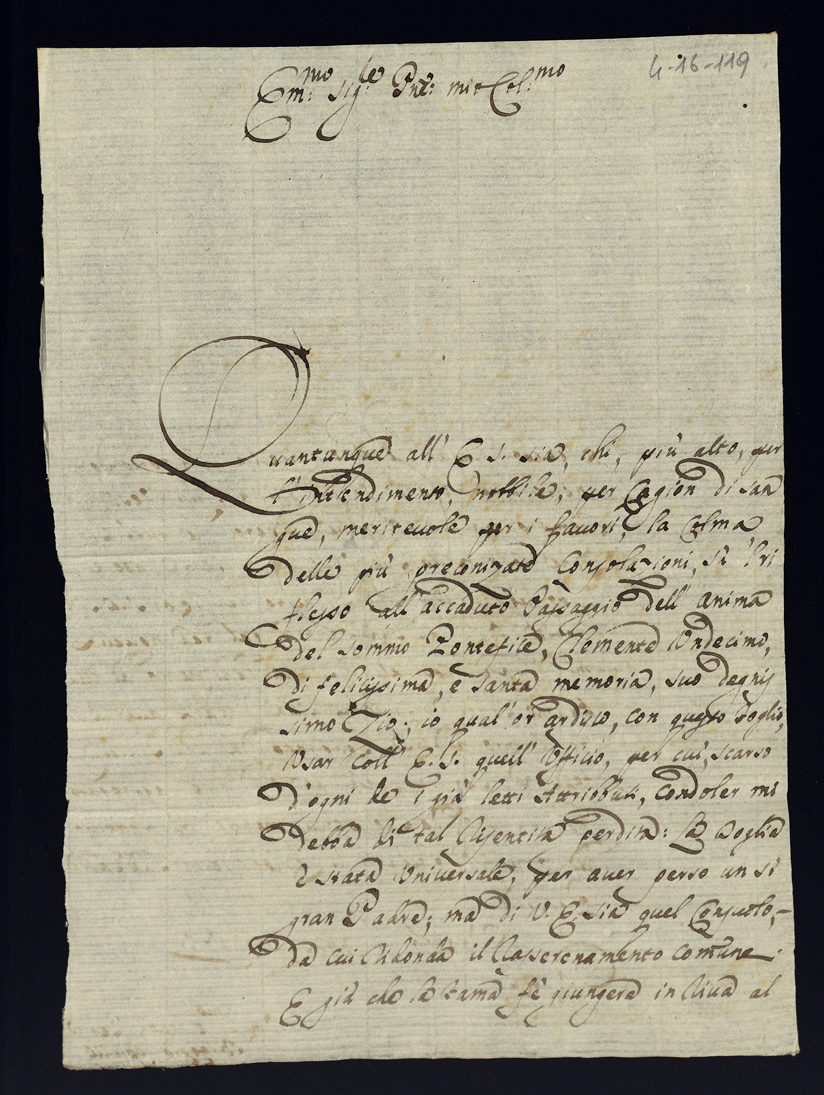 4-16-119
Em:mo Sig:le Pne: mio Col:mo
Quantunque all' E. S. sia, chi, più alto, per
l'intendimento, nobbile, per Cagion di san
gue, meritevole per i favori, la Colma
delle più preconizate Consolazioni, sù 'l ri
flesso all' accaduto Passaggio dell' anima
del Sommo Pontefice, Clemente Undecimo,
di felicissima, e santa memoria, suo degnis
simo Zio; io qual' or ardisco, con questo foglio,
Usar coll' E. S. quell' Ufficio, per cui, scarso
d'ogni de i già letti Attribbuti, Condoler mi
debba di tal Risentita perdita: la Doglia
è stata Universale, per aver perso un sì
gran Padre; ma di V. E. sia quel Consuolo,
da cui Ridonda il Rasserenamento Comune.
E già che la Fama fè giungere in Riva al